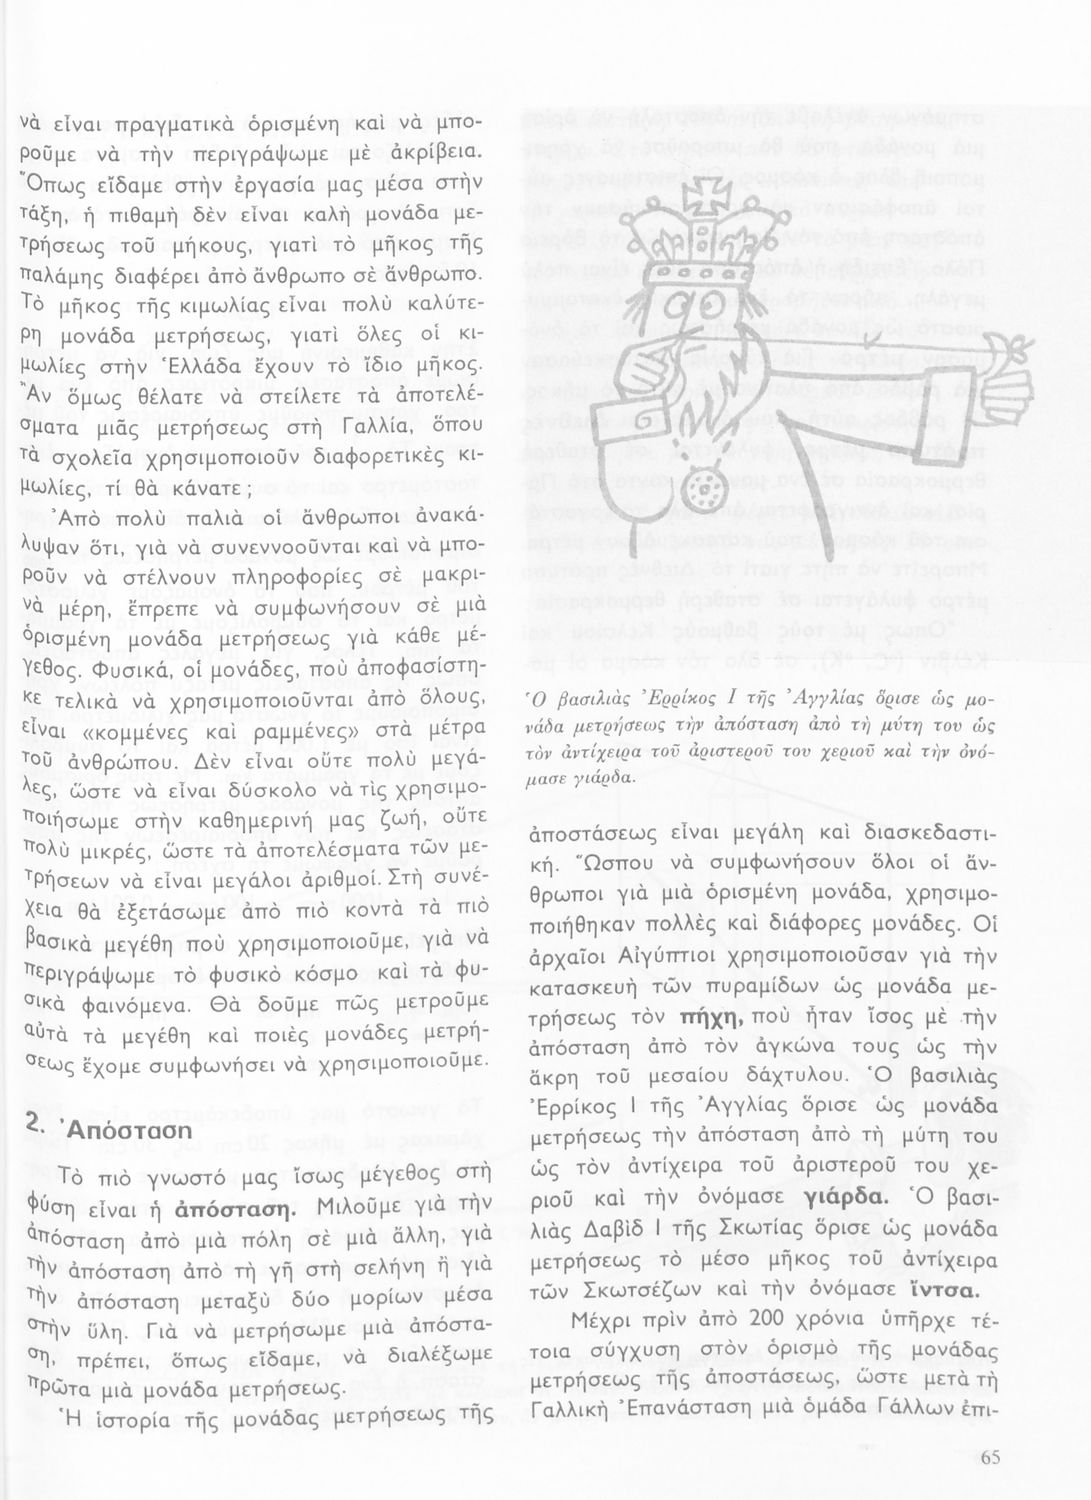 νὰ εἶναι πραγματικὰ ὁρισμένη καὶ νὰ μπο-
ροῦμε νὰ τὴν περιγράψωμε μὲ ἀκρίβεια.
Ὅπως εἴδαμε στὴν ἐργασία μας μέσα στὴν
τάξη, ἡ πιθαμὴ δὲν εἶναι καλὴ μονάδα με-
τρήσεως τοῦ μήκους, γιατὶ τὸ μῆκος τῆς
παλάμης διαφέρει ἀπὸ ἄνθρωπο σὲ ἄνθρωπο.
Τὸ μῆκος τῆς κιμωλίας εἶναι πολὺ καλύτε-
ρη μονάδα μετρήσεως, γιατὶ ὅλες οἱ κι-
μωλίες στὴν Ἑλλάδα ἔχουν τὸ ἴδιο μῆκος.
Ἂν ὅμως θέλατε νὰ στείλετε τὰ ἀποτελέ-
σματα μιᾶς μετρήσεως στὴ Γαλλία, ὅπου
τὰ σχολεῖα χρησιμοποιοῦν διαφορετικὲς κι-
μωλίες, τί θὰ κάνατε;
Ἀπὸ πολὺ παλιὰ οἱ ἄνθρωποι ἀνακά-
λυψαν ὅτι, γιὰ νὰ συνεννοοῦνται καὶ νὰ μπο-
ροῦν νὰ στέλνουν πληροφορίες σὲ μακρι-
νὰ μέρη, ἔπρεπε νὰ συμφωνήσουν σὲ μιὰ
ὁρισμένη μονάδα μετρήσεως γιὰ κάθε μέ-
γεθος. Φυσικά, οἱ μονάδες, ποὺ ἀποφασίστη-
κε τελικὰ νὰ χρησιμοποιοῦνται ἀπὸ ὅλους,
εἶναι «κομμένες καὶ ραμμένες» στὰ μέτρα
τοῦ ἀνθρώπου. Δὲν εἶναι οὔτε πολὺ μεγά-
λες, ὥστε νὰ εἶναι δύσκολο νὰ τὶς χρησιμο-
ποιήσωμε στὴν καθημερινή μας ζωή, οὔτε
πολὺ μικρές, ὥστε τὰ ἀποτελέσματα τῶν με-
τρήσεων νὰ εἶναι μεγάλοι ἀριθμοί. Στὴ συνέ-
χεια θὰ ἐξετάσωμε ἀπὸ πιὸ κοντὰ τὰ πιὸ
βασικὰ μεγέθη ποὺ χρησιμοποιοῦμε, γιὰ νὰ
περιγράψωμε τὸ φυσικὸ κόσμο καὶ τὰ φυ-
σικὰ φαινόμενα. Θὰ δοῦμε πῶς μετροῦμε
αὐτὰ τὰ μεγέθη καὶ ποιὲς μονάδες μετρή-
σεως ἔχομε συμφωνήσει νὰ χρησιμοποιοῦμε.
2. Ἀπόσταση
Τὸ πιὸ γνωστό μας ἴσως μέγεθος στὴ
φύση εἶναι ἡ ἀπόσταση. Μιλοῦμε γιὰ τὴν
ἀπόσταση ἀπὸ μιὰ πόλη σὲ μιὰ ἄλλη, γιὰ
τὴν ἀπόσταση ἀπὸ τὴ γῆ στὴ σελήνη ἢ γιὰ
τὴν ἀπόσταση μεταξὺ δύο μορίων μέσα
στὴν ὕλη. Γιὰ νὰ μετρήσωμε μιὰ ἀπόστα-
ση, πρέπει, ὅπως εἴδαμε, νὰ διαλέξωμε
πρῶτα μιὰ μονάδα μετρήσεως.
Ἡ ἱστορία τῆς μονάδας μετρήσεως τῆς
Ὁ βασιλιὰς Ἐρρίκος Ι τῆς Ἀγγλίας ὅρισε ὡς μο-
νάδα μετρήσεως τὴν ἀπόσταση ἀπὸ τὴ μύτη του ὡς
τὸν ἀντίχειρα τοῦ ἀριστεροῦ του χεριοῦ καὶ τὴν ὀνό-
μασε γιάρδα.
ἀποστάσεως εἶναι μεγάλη καὶ διασκεδαστι-
κή. Ὥσπου νὰ συμφωνήσουν ὅλοι οἱ ἄν-
θρωποι γιὰ μιὰ ὁρισμένη μονάδα, χρησιμο-
ποιήθηκαν πολλὲς καὶ διάφορες μονάδες. Οἱ
ἀρχαῖοι Αἰγύπτιοι χρησιμοποιοῦσαν γιὰ τὴν
κατασκευὴ τῶν πυραμίδων ὡς μονάδα με-
τρήσεως τὸν πήχη, ποὺ ἦταν ἴσος μὲ τὴν
ἀπόσταση ἀπὸ τὸν ἀγκώνα τους ὡς τὴν
ἄκρη τοῦ μεσαίου δάχτυλου. Ὁ βασιλιὰς
Ἐρρίκος Ι τῆς Ἀγγλίας ὅρισε ὡς μονάδα
μετρήσεως τὴν ἀπόσταση ἀπὸ τὴ μύτη του
ὡς τὸν ἀντίχειρα τοῦ ἀριστεροῦ του χε-
ριοῦ καὶ τὴν ὀνόμασε γιάρδα. Ὁ βασι-
λιὰς Δαβὶδ Ι τῆς Σκωτίας ὅρισε ὡς μονάδα
μετρήσεως τὸ μέσο μῆκος τοῦ ἀντίχειρα
τῶν Σκωτσέζων καὶ τὴν ὀνόμασε ἴντσα.
Μέχρι πρὶν ἀπὸ 200 χρόνια ὑπῆρχε τέ-
τοια σύγχυση στὸν ὁρισμὸ τῆς μονάδας
μετρήσεως τῆς ἀποστάσεως, ὥστε μετὰ τὴ
Γαλλικὴ Ἐπανάσταση μιὰ ὁμάδα Γάλλων ἐπι-
65